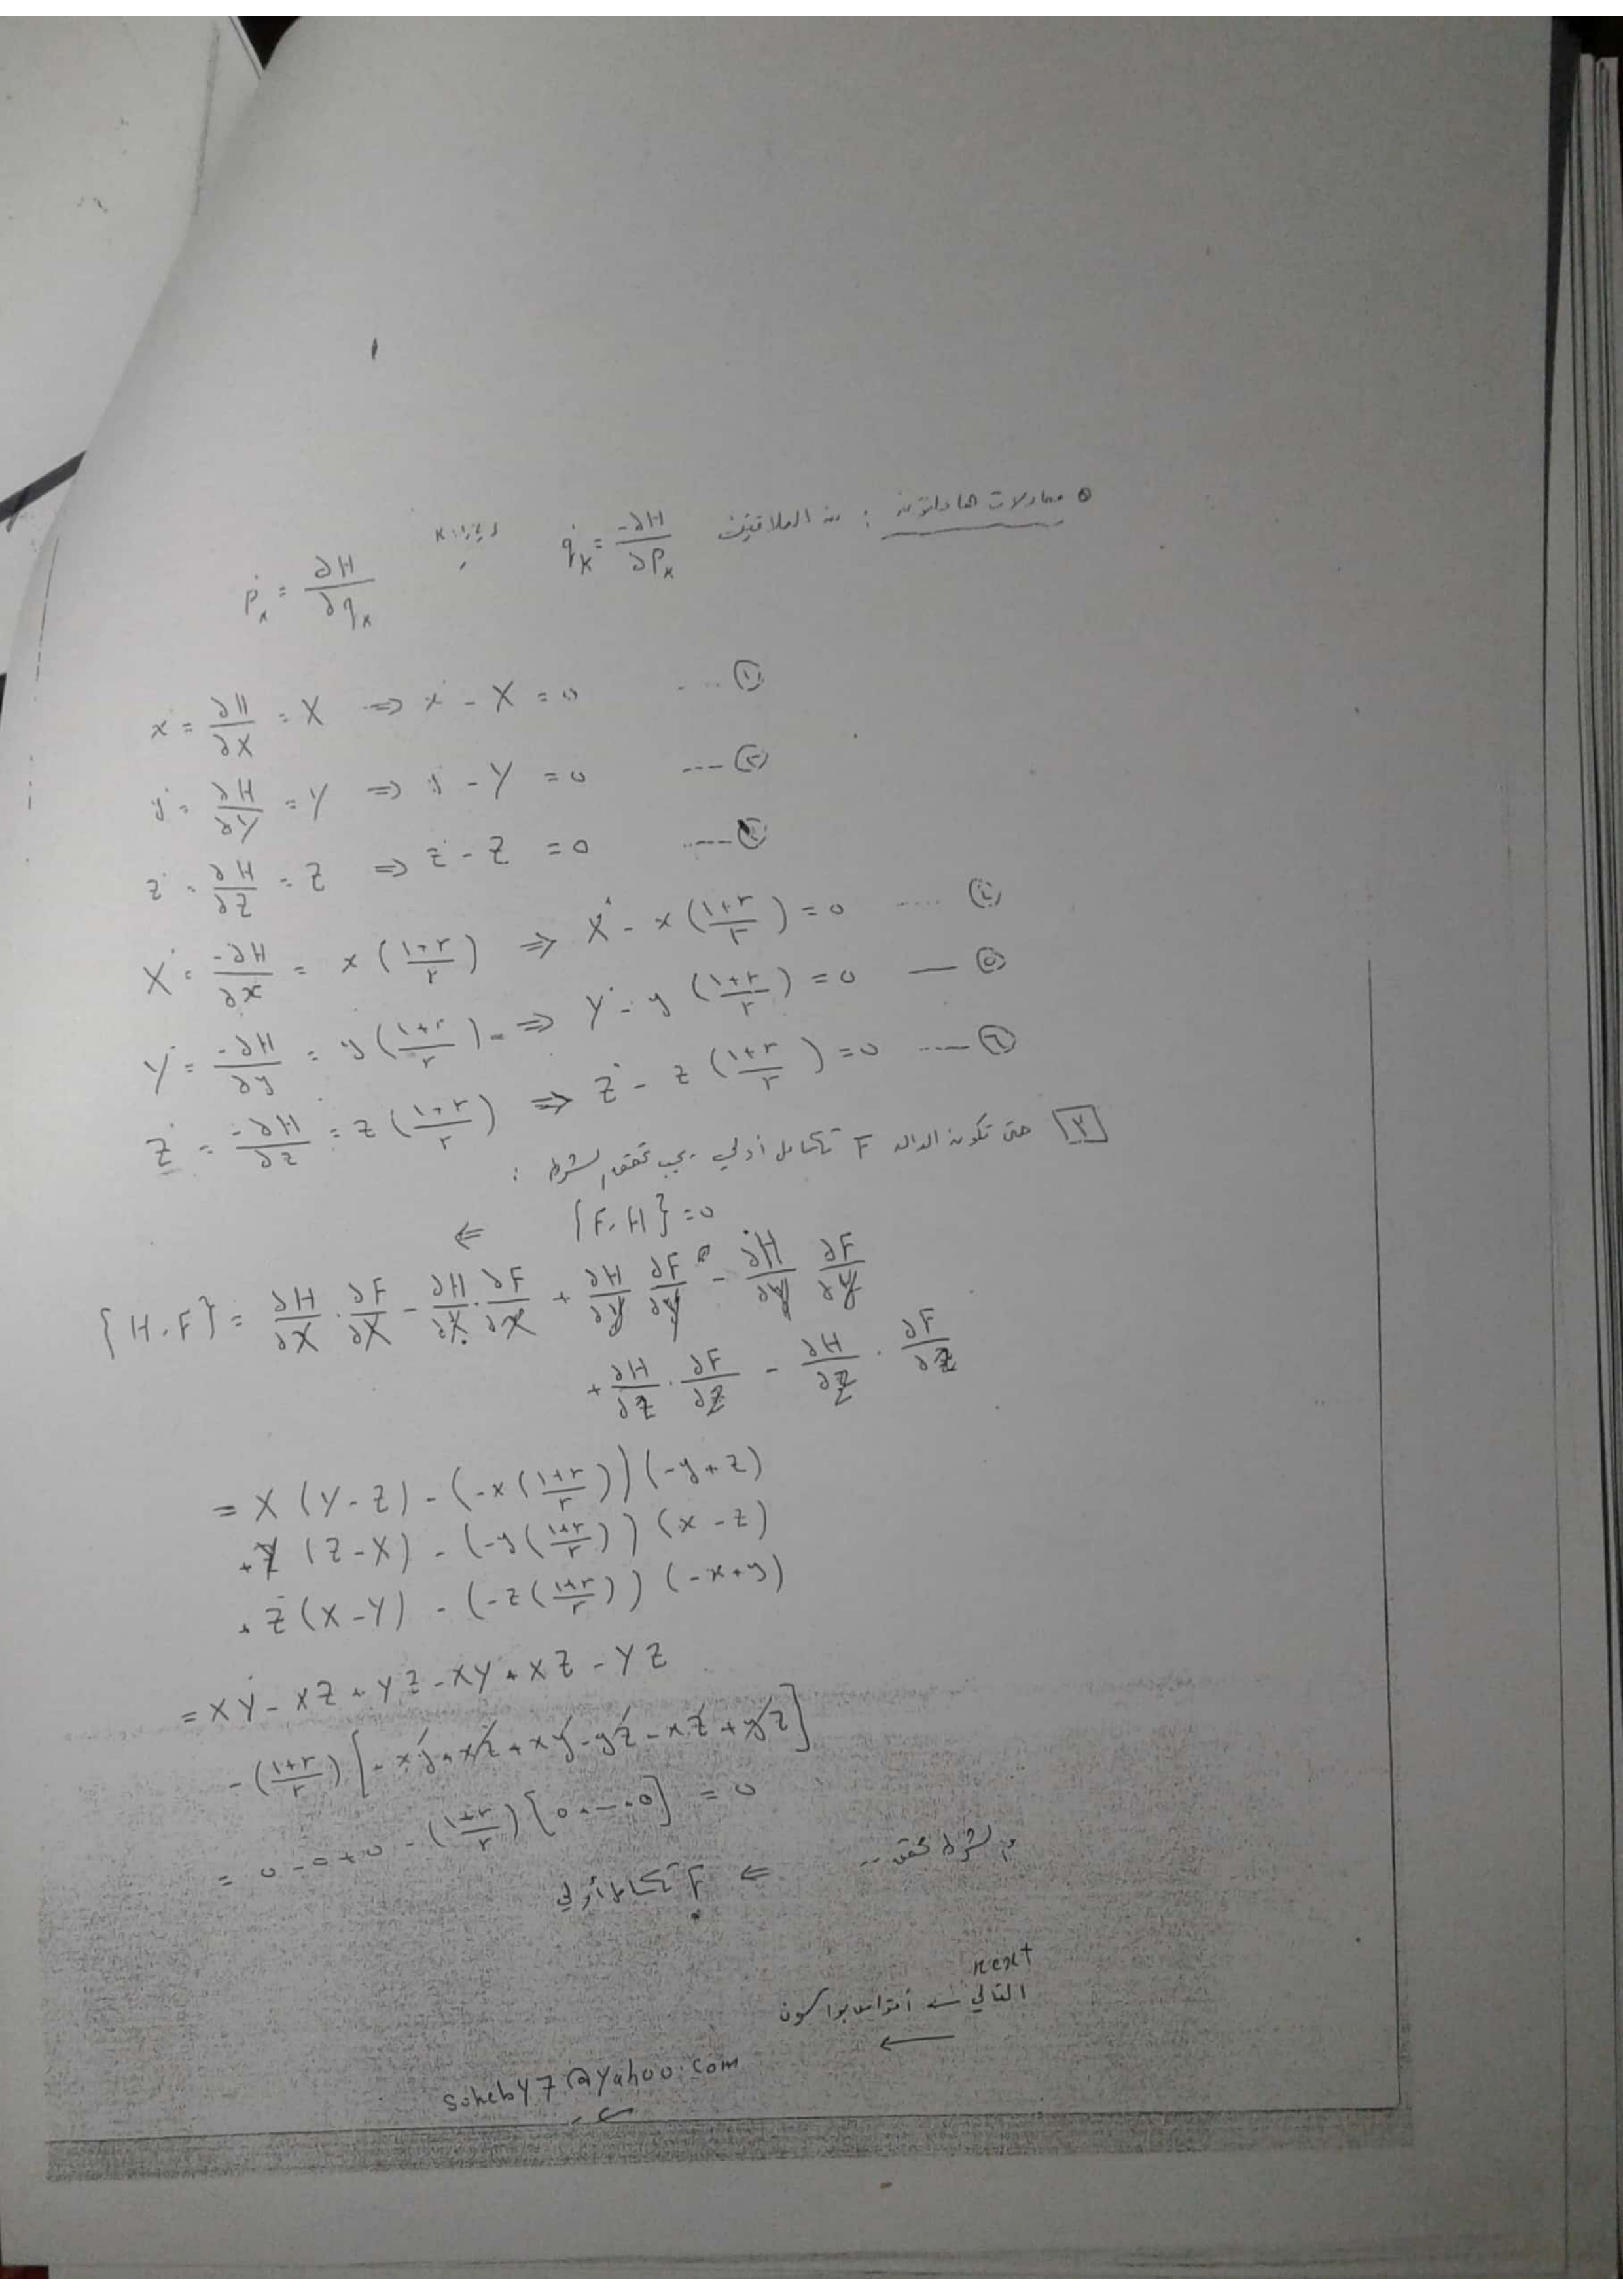 • معادلات هاملتون : من العلاقتين q̇ₖ = -∂H/∂Pₖ
ṗₖ = ∂H/∂qₖ
ẋ = ∂H/∂X = X ⇒ ẋ - X = 0 .... ①
ẏ = ∂H/∂Y = Y ⇒ ẏ - Y = 0 ---- ②
ż = ∂H/∂Z = Z ⇒ ż - Z = 0 ..... ③
Ẋ = -∂H/∂x = x(1+r/r) ⇒ Ẋ - x(1+r/r) = 0 ..... ④
Ẏ = -∂H/∂y = y(1+r/r) ⇒ Ẏ - y(1+r/r) = 0 — ⑤
Ż = -∂H/∂z = z(1+r/r) ⇒ Ż - z(1+r/r) = 0 ..... ⑥
حتى تكون الدالة F تكامل أولي يجب تحقق الشرط :
{F, H} = 0 ⇐
{H, F} = ∂H/∂X · ∂F/∂x - ∂H/∂x · ∂F/∂X + ∂H/∂Y ∂F/∂y - ∂H/∂y ∂F/∂Y
+ ∂H/∂Z · ∂F/∂z - ∂H/∂z · ∂F/∂Z
= X(Y-Z) - (-x(1+r/r))(-y+z)
+ Y(Z-X) - (-y(1+r/r))(x-z)
+ Z(X-Y) - (-z(1+r/r))(-x+y)
= XY - XZ + YZ - XY + XZ - YZ
- (1+r/r)[-xy + xz + xy - yz - xz + yz]
= 0 - 0 + 0 - (1+r/r)[0 + — + 0] = 0
الشرط محقق .. ⇐ F تكامل أولي
next
التالي أقواس بواسون
←
soheby7@yahoo.com